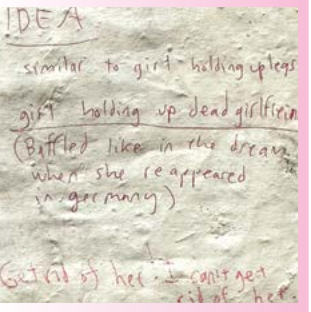 IDEA
similar to girl holding up legs
girl holding up dead girlfrein
(Baffled like in the dream
when she reappeared
in germany)
Get rid of her. I can't get
rid of her.